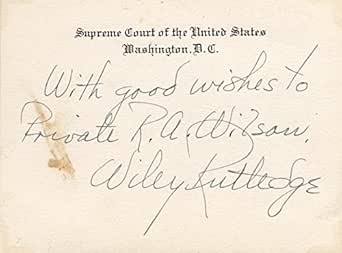 Supreme Court of the United States
Washington, D.C.
With good wishes to
Private R. A. Wilson.
Wiley Rutledge